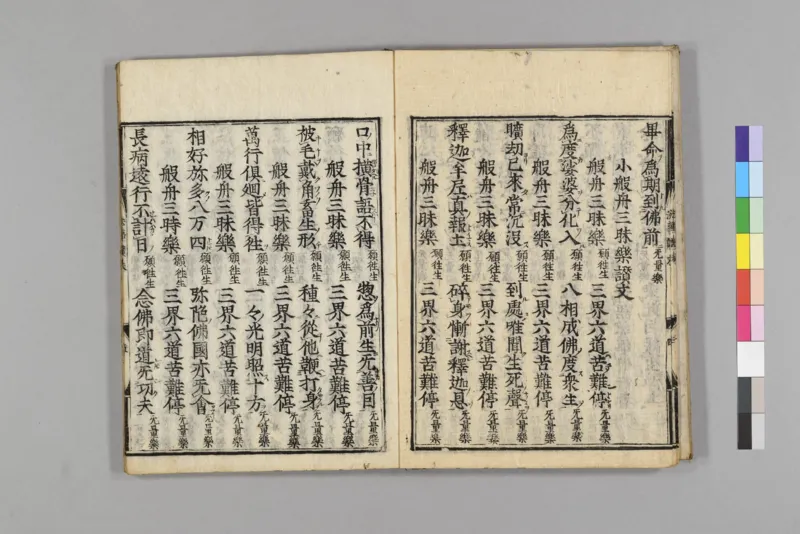 畢命為期到佛前 无量樂
小般舟三昧樂讃文
般舟三昧樂 願徃生 三界六道苦難停 无量樂
為度娑婆分化入 願徃生 八相成佛度衆生 无量樂
般舟三昧樂 願徃生 三界六道苦難停 无量樂
曠劫已來常沉没 願徃生 到處唯聞生死聲 无量樂
般舟三昧樂 願徃生 三界六道苦難停 无量樂
釋迦牟尼真報土 願徃生 碎身慚謝釋迦恩 无量樂
般舟三昧樂 願徃生 三界六道苦難停 无量樂
口中横骨語不得 願徃生 惣為前生无善因 无量樂
般舟三昧樂 願徃生 三界六道苦難停 无量樂
被毛戴角畜生形 願徃生 種々從他鞭打身 无量樂
般舟三昧樂 願徃生 三界六道苦難停 无量樂
萬行俱廻皆得徃 願徃生 一々光明照十方 无量樂
般舟三昧樂 願徃生 三界六道苦難停 无量樂
相好弥多八万四 願徃生 弥陁佛國亦无
般舟三時樂 願徃生 三界六道苦難停 无量樂
長病遠行不計日 願徃生 念佛即道无功夫 无量樂